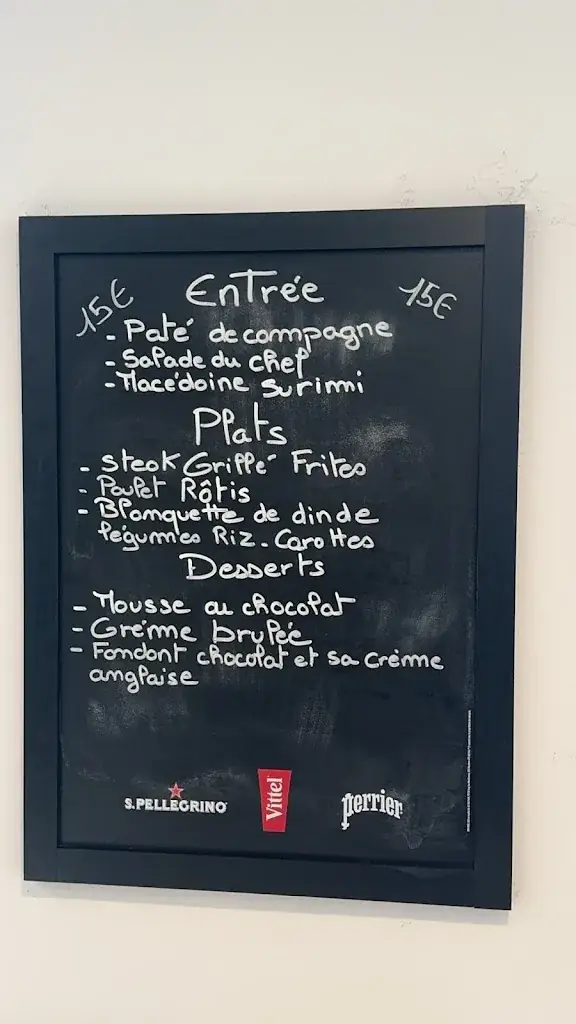 15€ Entrée 15€
- Paté de compagne
- Salade du chef
- Macédoine surimi
Plats
- Steak Grillé Frites
- Poulet Rôtis
- Blanquette de dinde
légumes Riz - Carottes
Desserts
- Mousse au chocolat
- Créme brulée
- Fondant chocolat et sa crème
anglaise
S.PELLEGRINO Vittel perrier